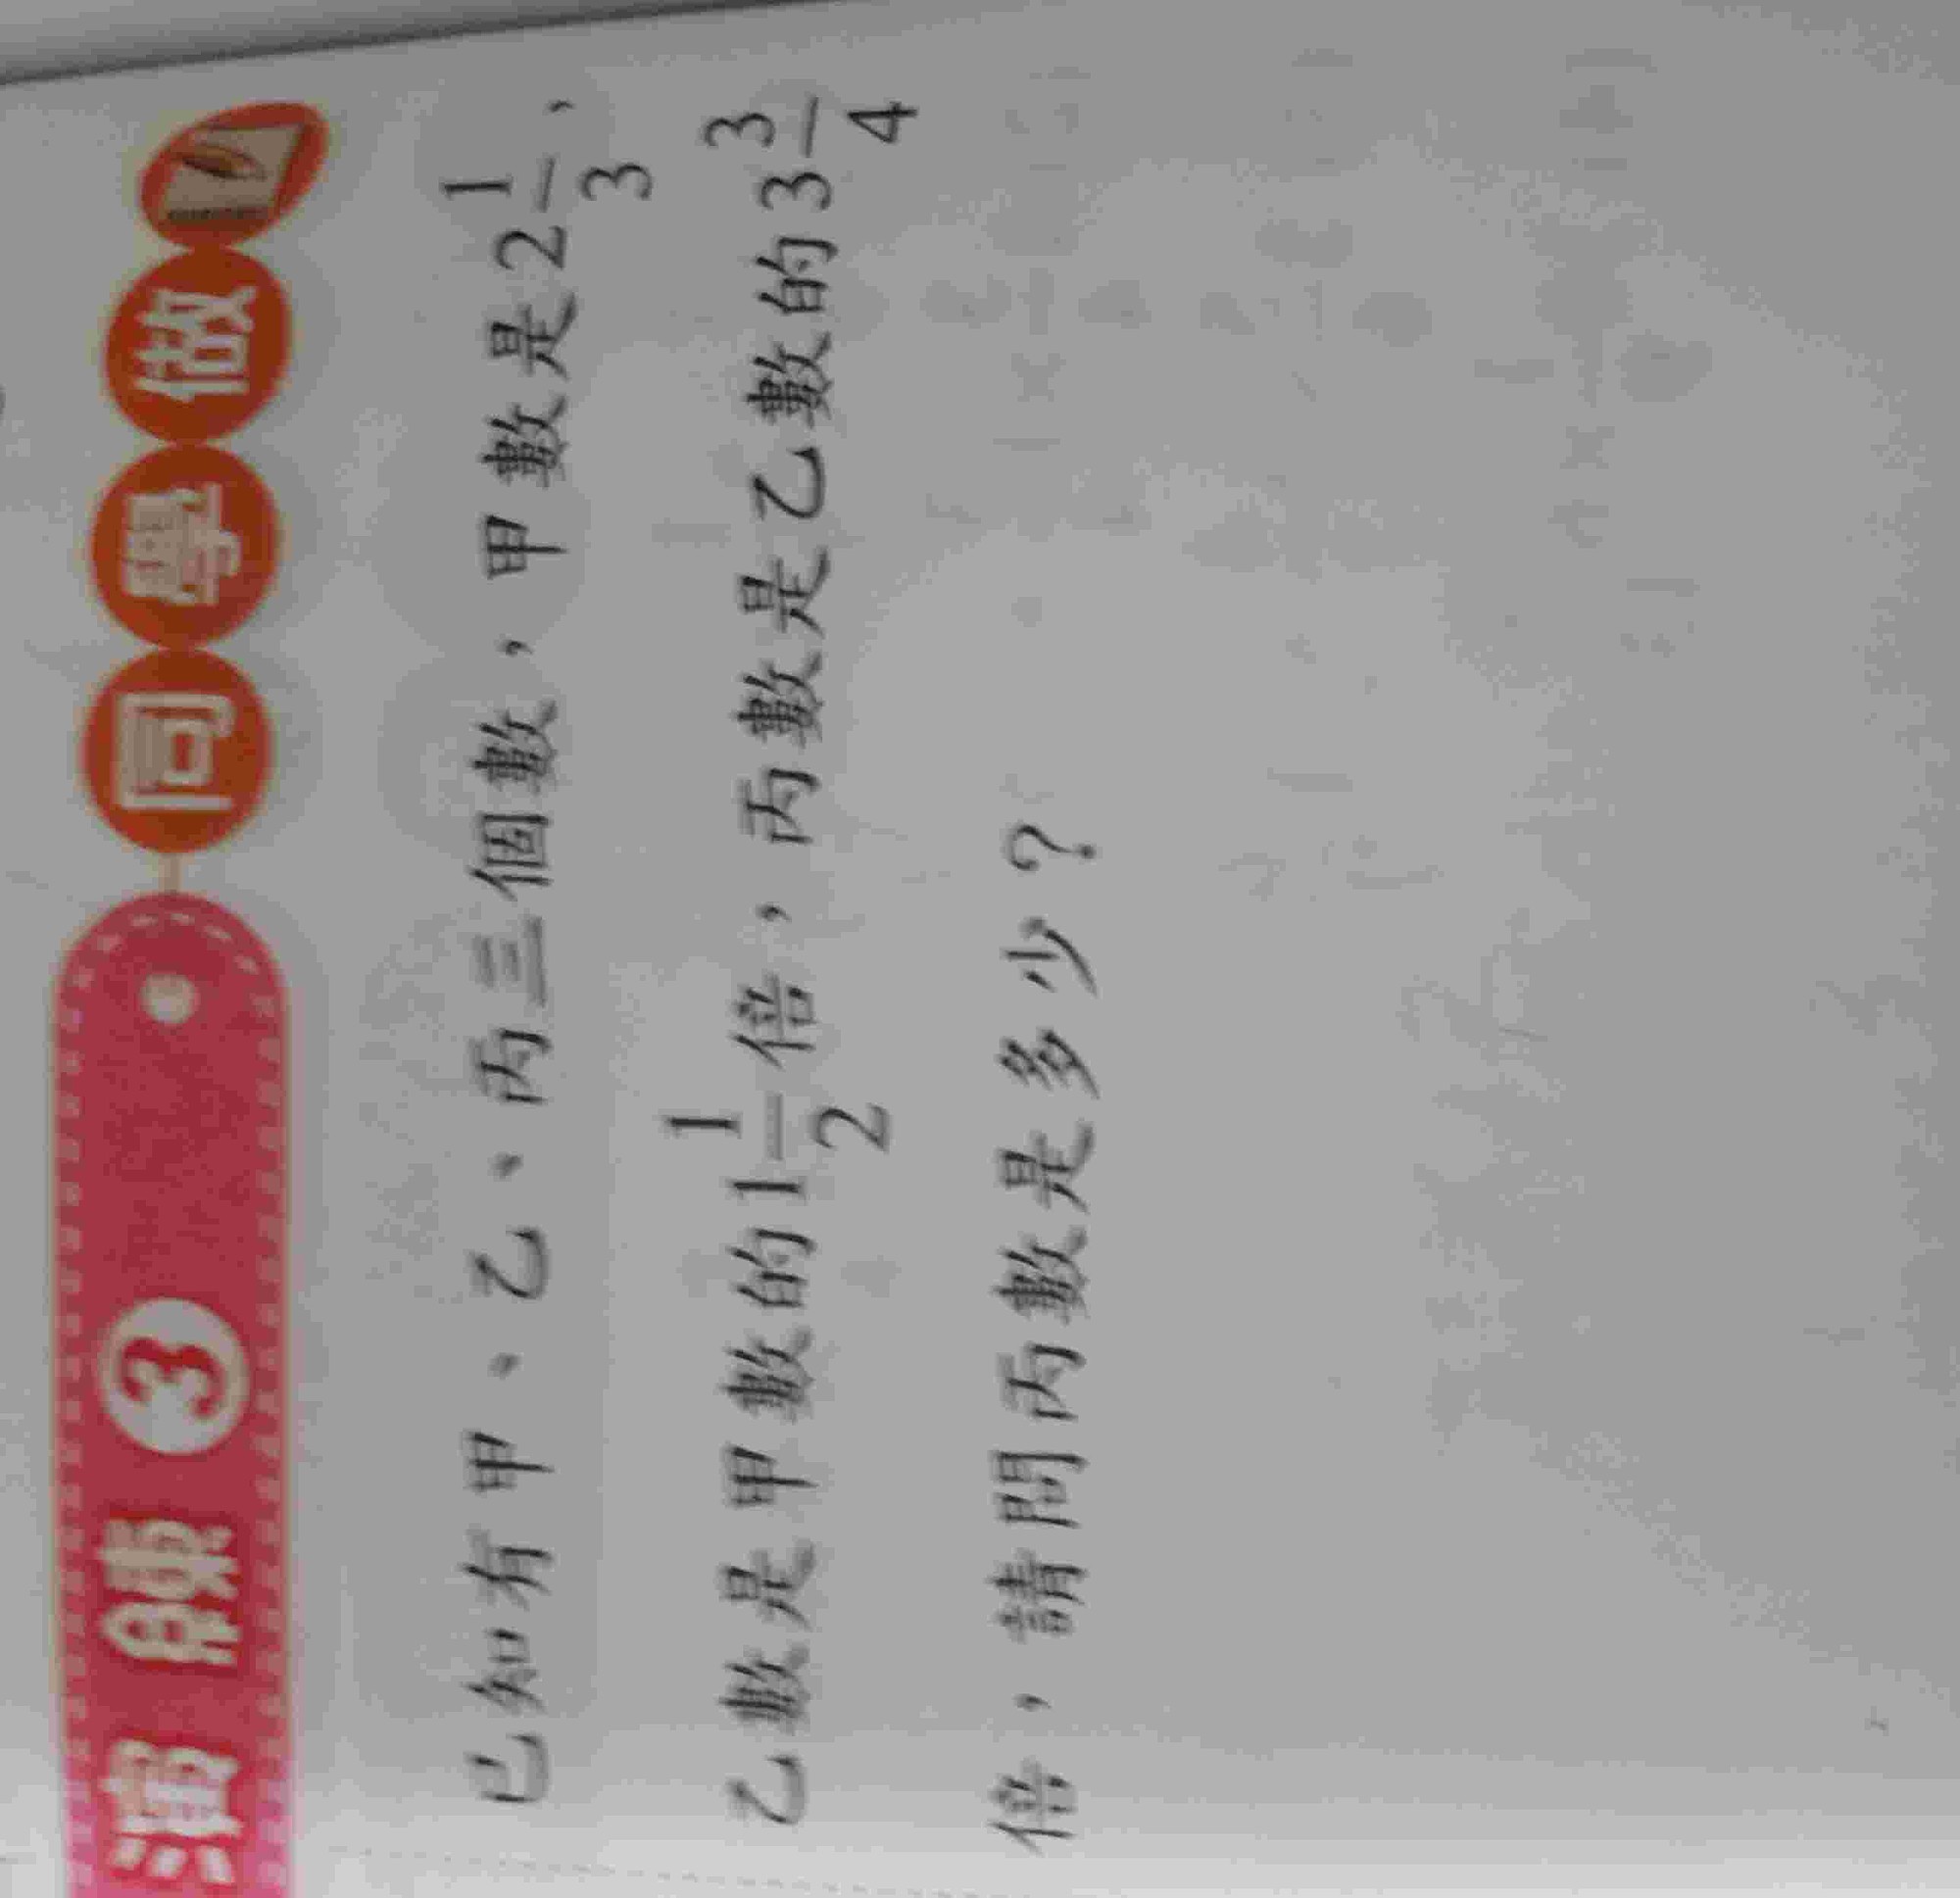 演練 3 回學做
已知有甲、乙、丙三個數，甲數是2 1/3、
乙數是甲數的1 1/2倍，丙數是乙數的3 3/4
倍，請問丙數是多少？